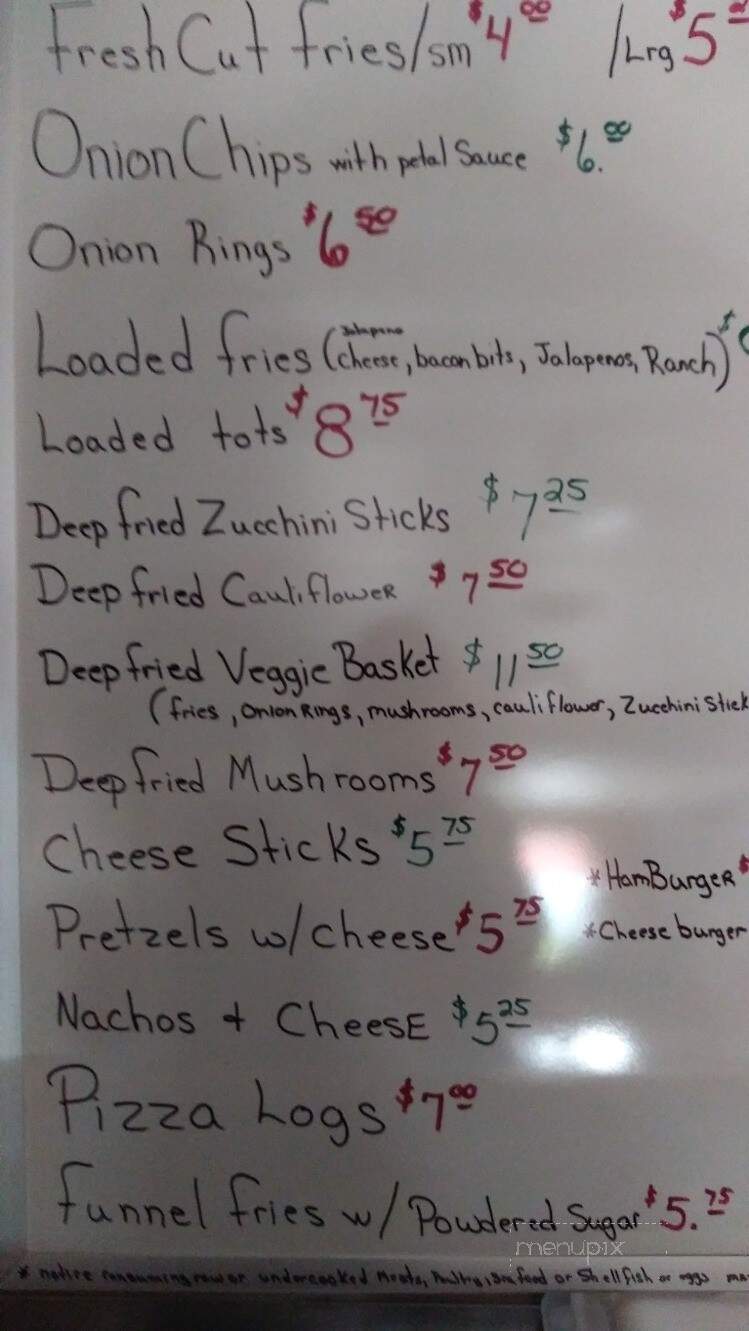 Fresh Cut fries/sm $4 00 /Lrg $5
Onion Chips with petal Sauce $6.00
Onion Rings $6 50
Jalapeno
Loaded fries (cheese, bacon bits, Jalapenos, Ranch) $
Loaded tots $8 75
Deep fried Zucchini Sticks $7 25
Deep fried Cauliflower $7 50
Deep fried Veggie Basket $11 50
(fries, Onion Rings, mushrooms, cauliflower, Zucchini Stick
Deep fried Mushrooms $7 50
Cheese Sticks $5 75
*HamBurger $
Pretzels w/cheese $5 75
*Cheese burger
Nachos + CheesE $5 25
Pizza Logs $7 00
funnel fries w/ Powdered Sugar $5.75
menupix
* notice consuming raw or undercooked Meats, Poultry, Seafood or Shellfish or eggs